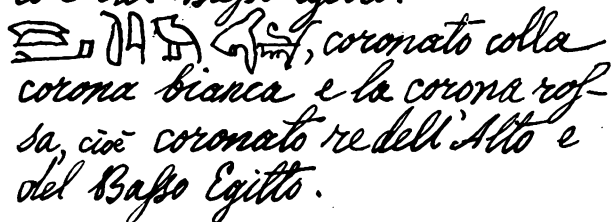 , coronato colla
corona bianca e la corona rof-
sa, cioè coronato re dell'Alto e
del Bafso Egitto.